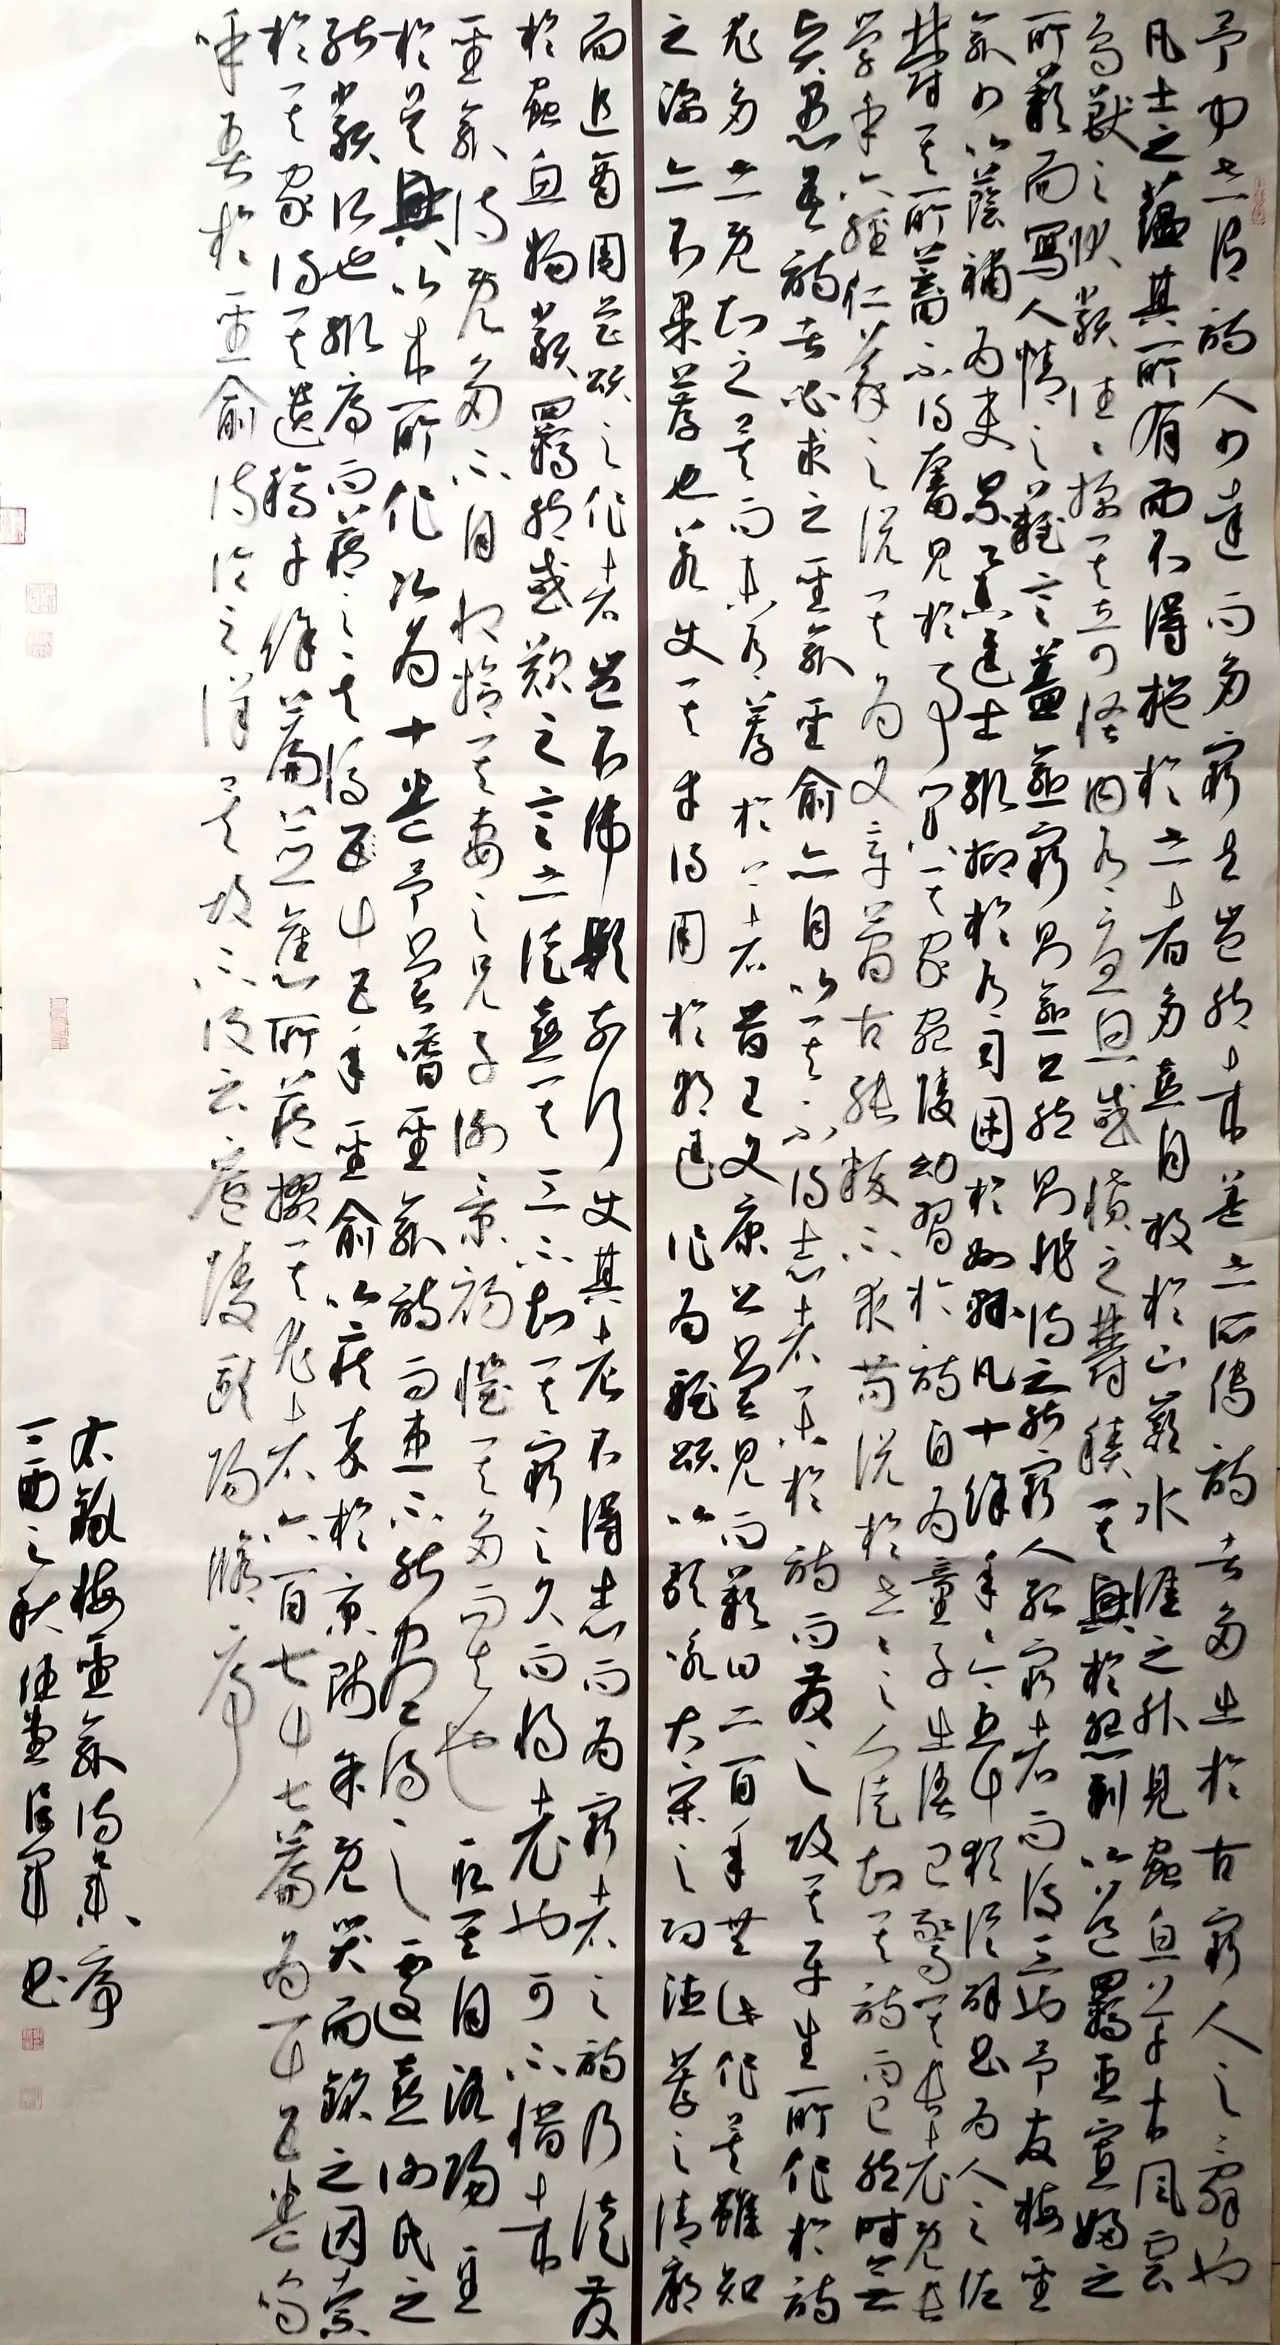 予聞世謂詩人少達而多窮夫豈然哉蓋世所傳詩者多出於古窮人之辭也
凡士之蘊其所有而不得施於世者多喜自放於山巔水涯之外見蟲魚草木風雲
鳥獸之狀類往往探其奇怪內有憂思感憤之鬱積其興於怨刺以道羈臣寡婦之
所歎而寫人情之難言蓋愈窮則愈工然則非詩之能窮人殆窮者而後工也予友梅聖
俞少以蔭補為吏累舉進士輒抑於有司困於州縣凡十餘年年今五十猶從辟書為人之佐
鬱其所蓄不得奮見於事業其家宛陵幼習於詩自為童子出語已驚其長老既長
學乎六經仁義之說其為文章簡古純粹不求苟說於世世之人徒知其詩而已然時無
賢愚語詩者必求之聖俞聖俞亦自以其不得志者樂於詩而發之故其平生所作於詩
尤多世既知之矣而未有薦於上者昔王文康公嘗見而歎曰二百年無此作矣雖知
之深亦不果薦也若使其幸得用於朝廷作為雅頌以歌詠大宋之功德薦之清廟
而追商周魯頌之作者豈不偉歟奈何使其老不得志而為窮者之詩乃徒發
於蟲魚物類羈愁感歎之言世徒喜其工不知其窮之久而將老也可不惜哉
聖俞詩既多不自收拾其妻之兄子謝景初懼其多而失也取其自洛陽至
於吳興以來所作次為十卷予嘗嗜聖俞詩而患不能盡得之遽喜謝氏之
能類次也輒序而藏之其後十五年聖俞以疾卒於京師余既哭而銘之因索
於其家得其遺稿千餘篇並舊所藏掇其尤者六百七十七篇為一十五卷嗚
呼吾於聖俞詩論之詳矣故不復云廬陵歐陽脩序
梅聖俞詩集序
之秋 書